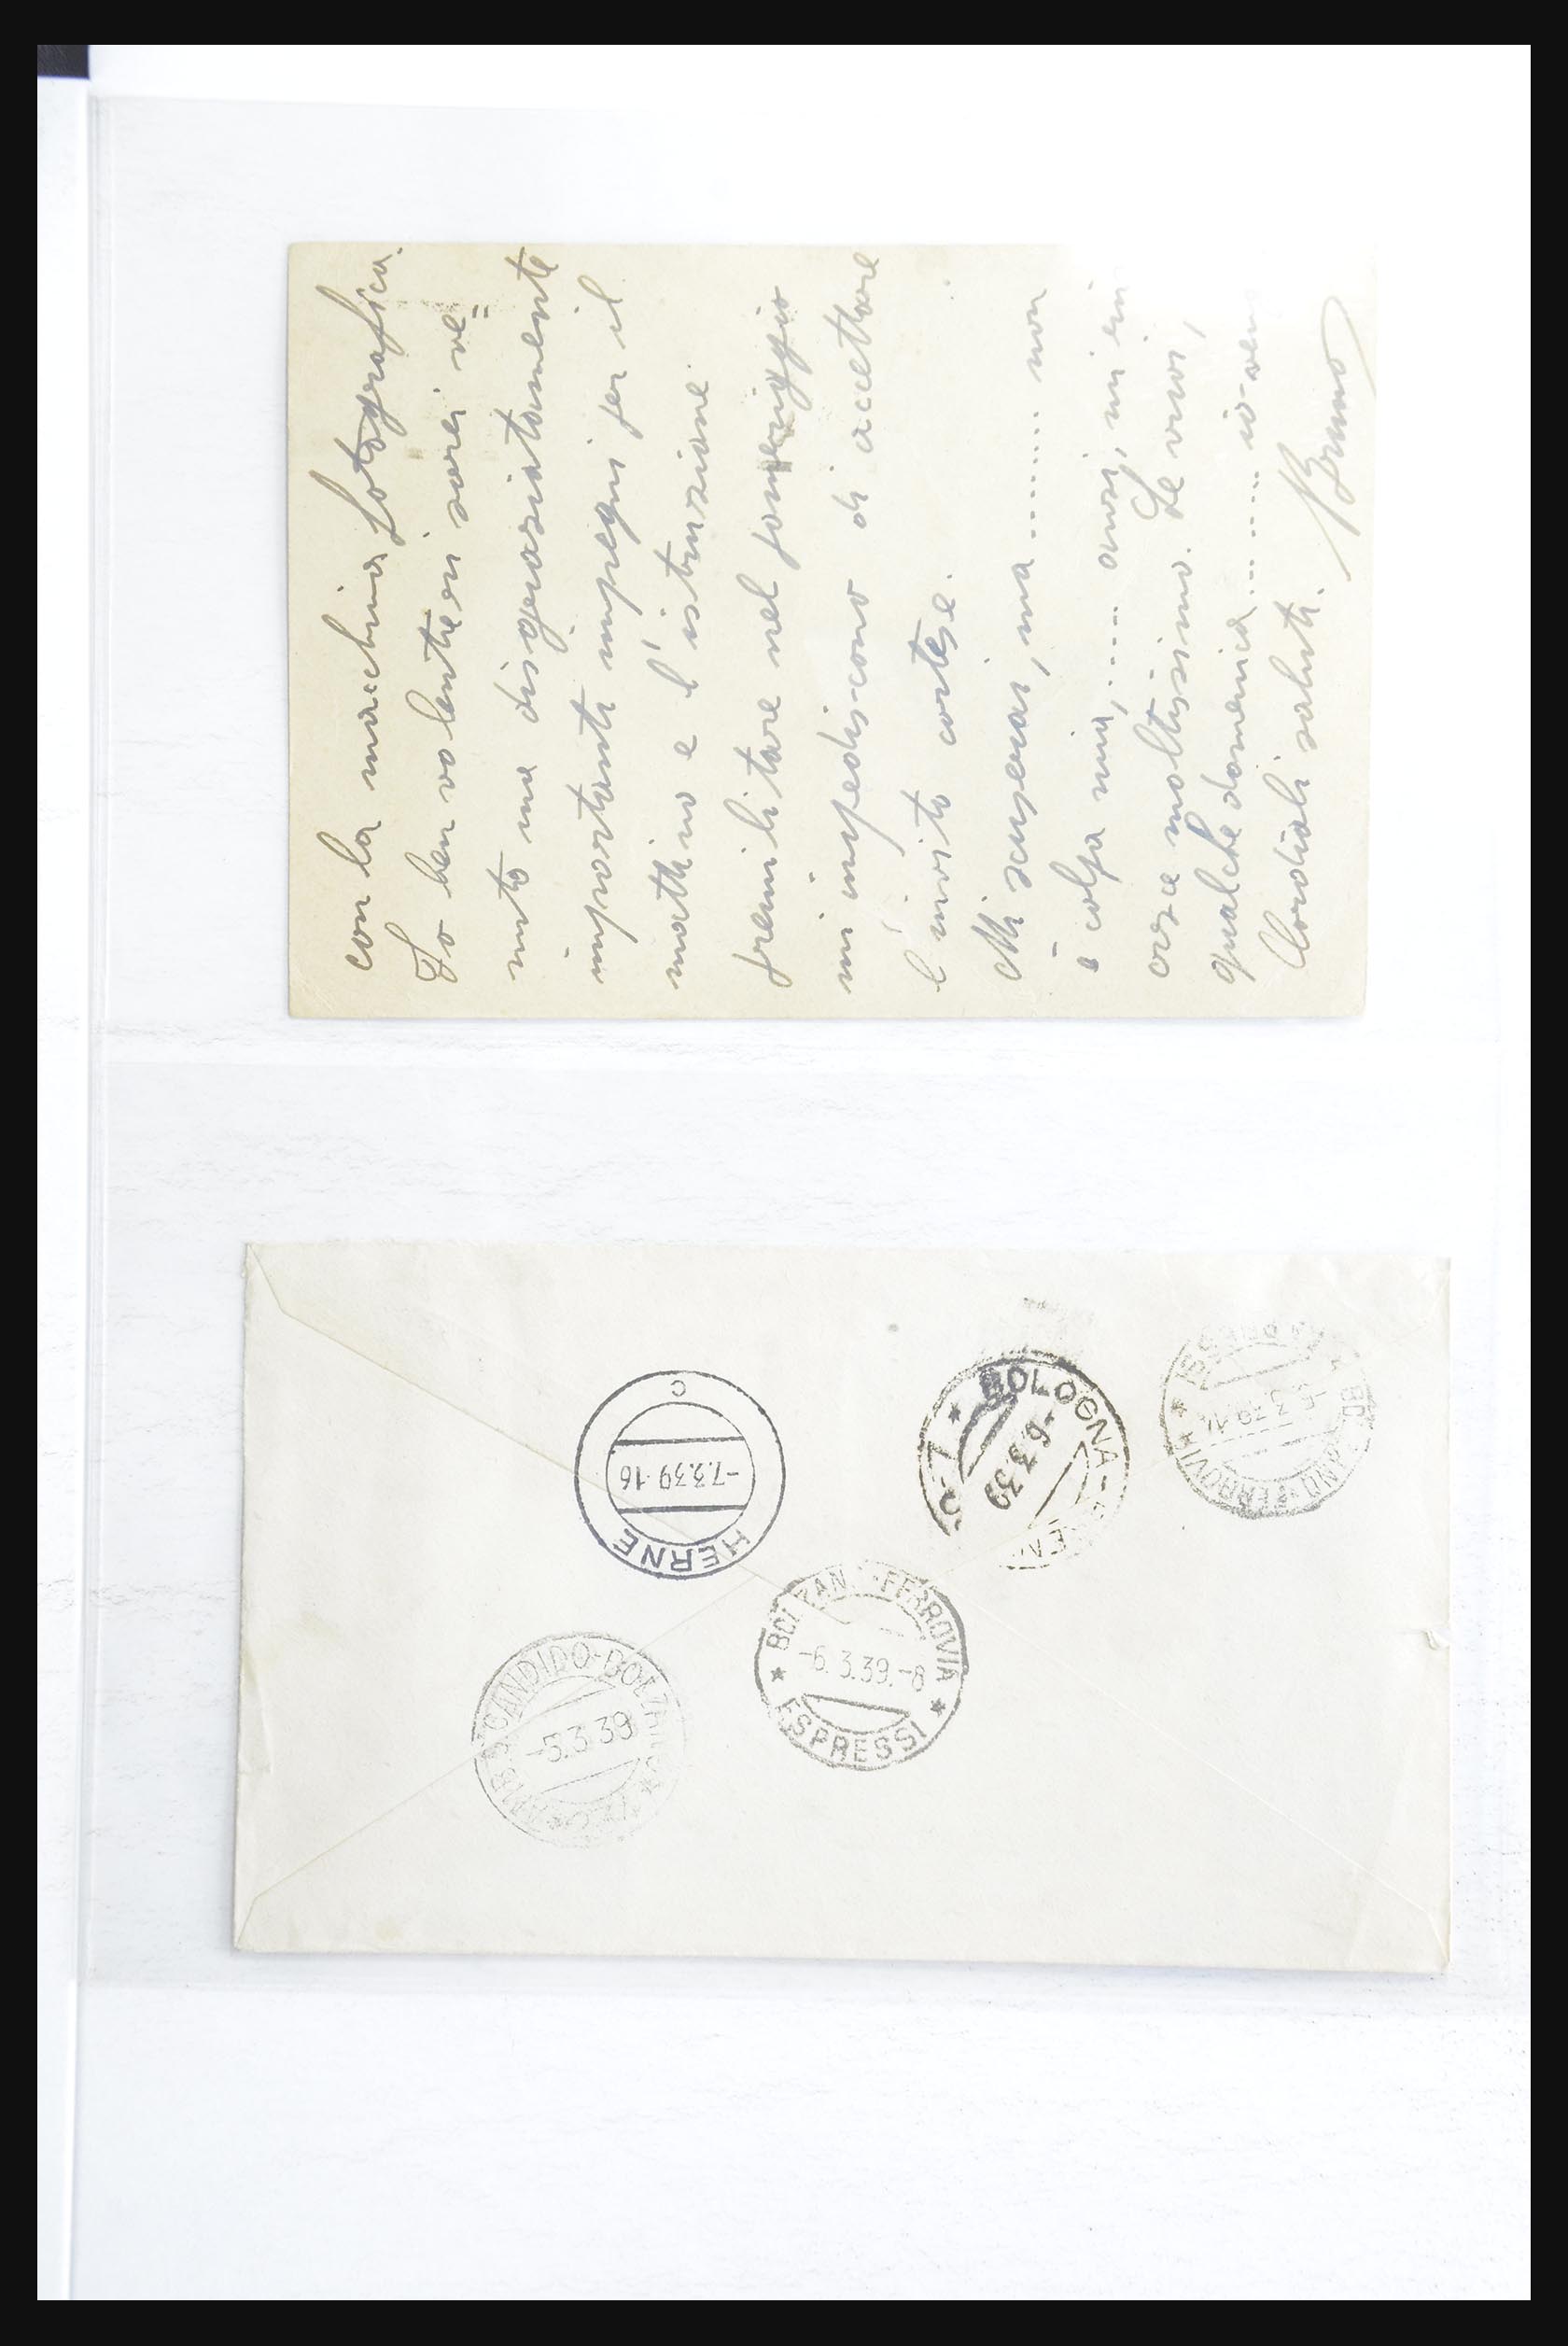 con la macchina fotografica.
Io ben volentieri sarei ve=
nuto ma disgraziatamente
importanti impegni per il
mattino e l'istruzione
premilitare nel pomeriggio
mi impediscono di accettare
l'invito cortese.
Mi scuserai, ma ........ non
è colpa mia, ..... anzi, mi rin
cresce moltissimo. Se vuoi,
qualche domenica ....... io ven
Cordiali saluti.
Bruno
C
-7.3.39-16
HERNE
BOLOGNA-
-6.3.39
BOLZANO FERROVIA
ESPRESSI
BOLZANO-FERROVIA
-6.3.39.-8
ESPRESSI
S.CANDIDO-BOLZANO
-5.3.39